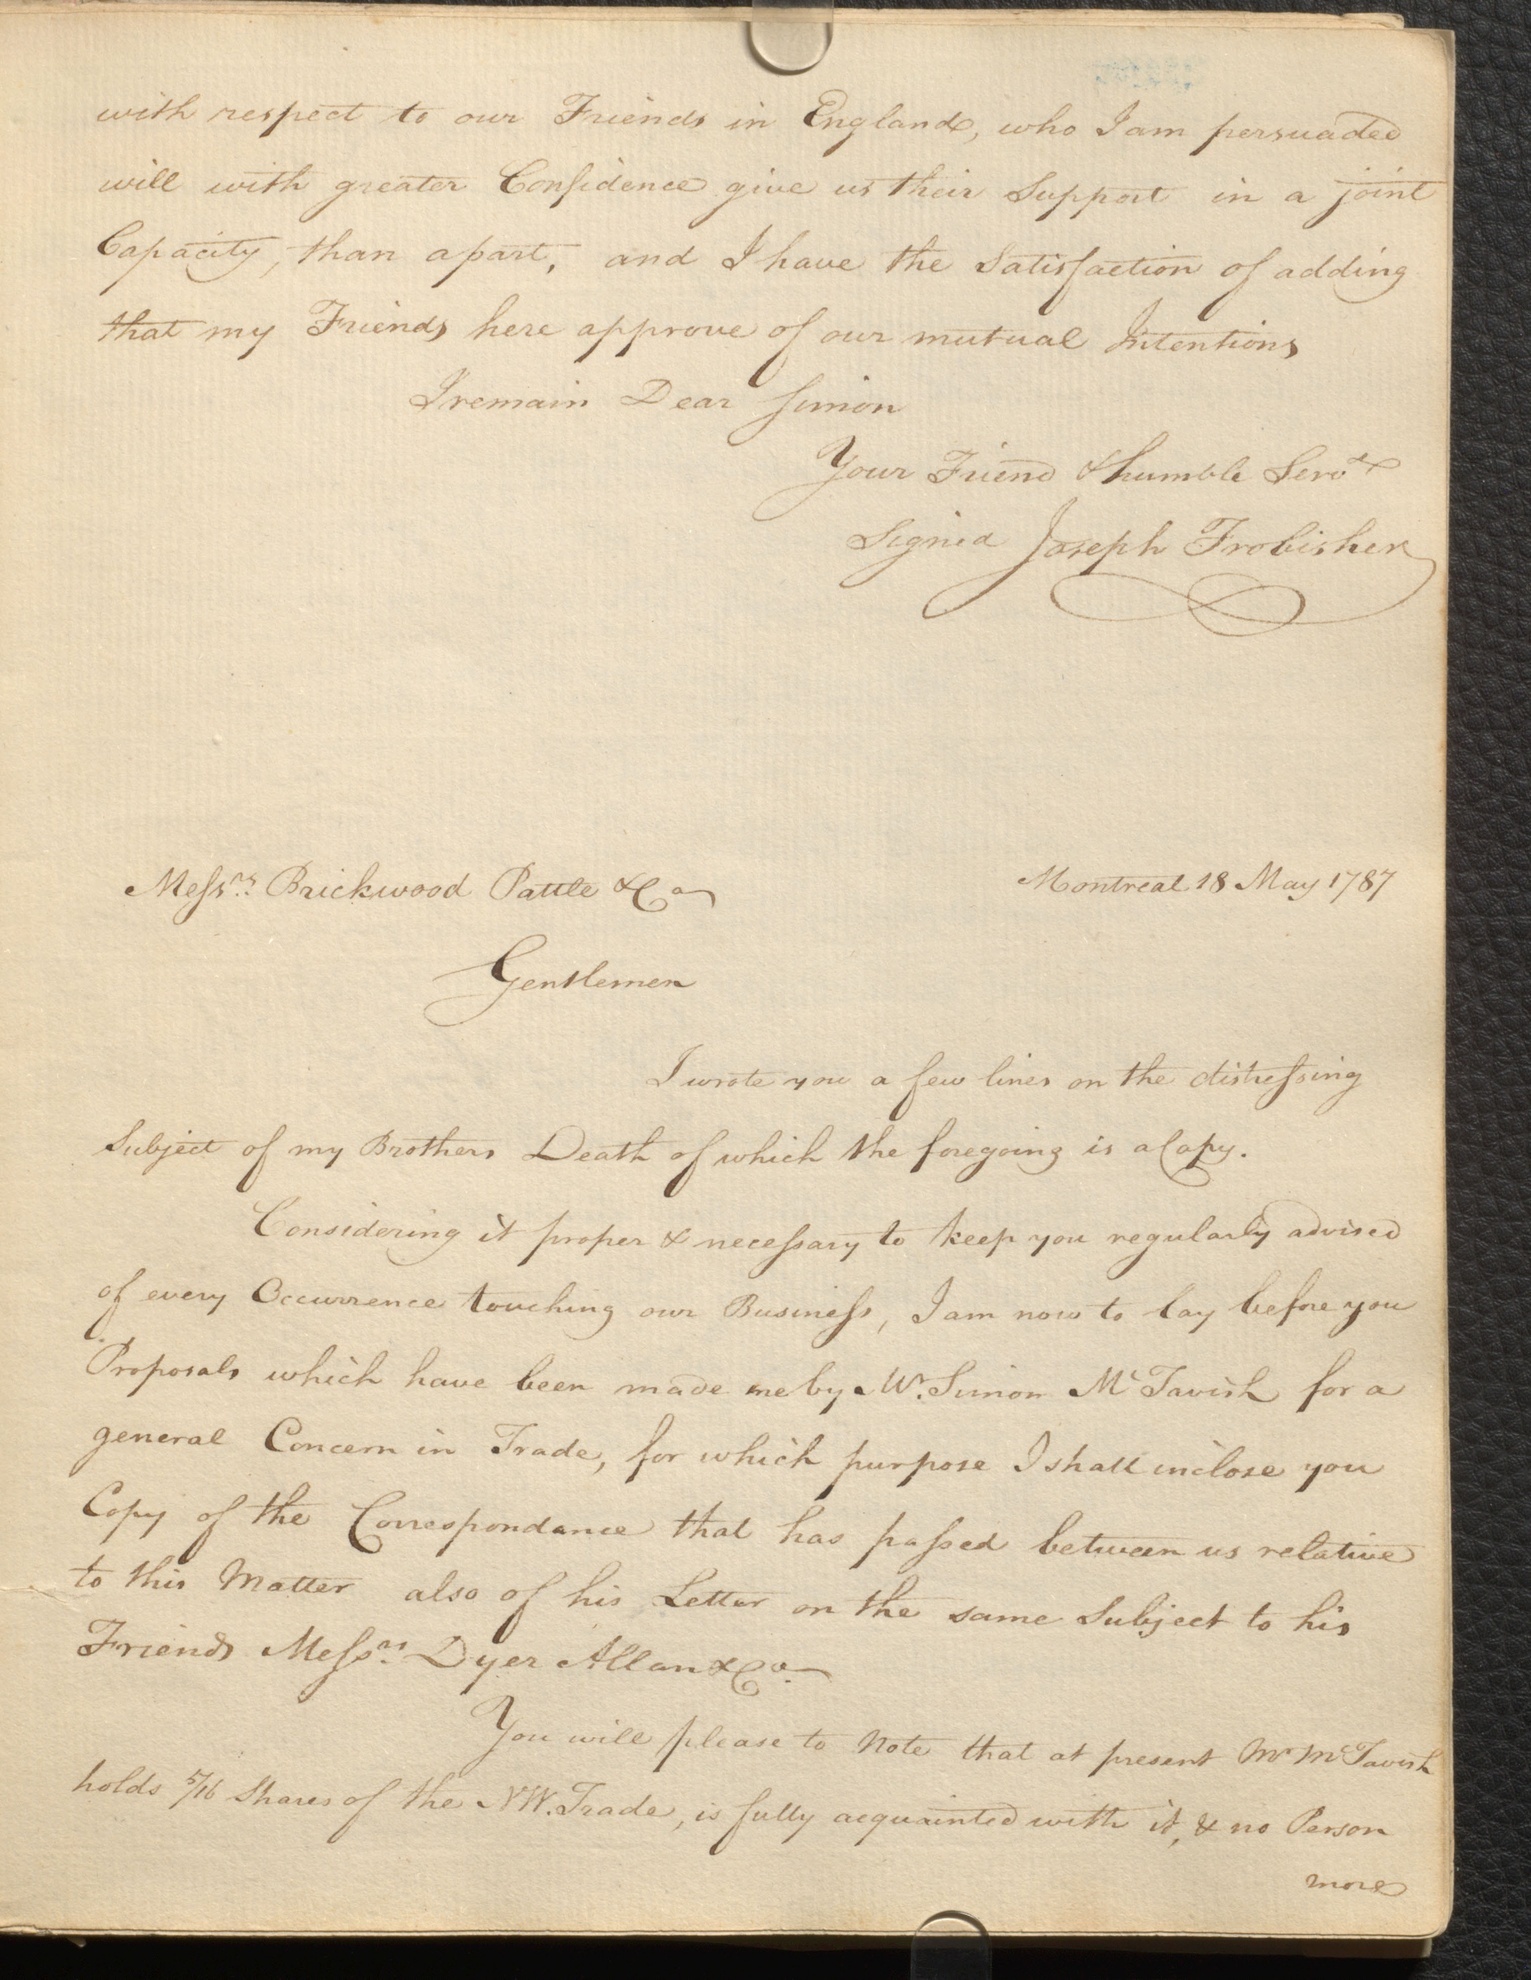 with respect to our Friends in England, who I am persuaded
will with greater Confidence give us their Support in a joint
Capacity, than apart, and I have the Satisfaction of adding
that my Friends here approve of our mutual Intentions
I remain Dear Simon
Your Friend & humble Servt
Signed Joseph Frobisher
Messrs. Brickwood Pattle & Co
Montreal 18 May 1787
Gentlemen
I wrote you a few lines on the distressing
Subject of my Brothers Death of which the foregoing is a Copy.
Considering it proper & necessary to keep you regularly advised
of every Occurrence touching our Business, I am now to lay before you
Proposals which have been made me by Mr. Simon McTavish for a
general Concern in Trade, for which purpose I shall inclose you
Copy of the Correspondance that has passed between us relative
to this Matter also of his Letter on the same Subject to his
Friends Messrs. Dyer Allan & Co.
You will please to Note that at present Mr McTavish
holds 5/16 Shares of the NW. Trade, is fully acquainted with it, & no Person
more